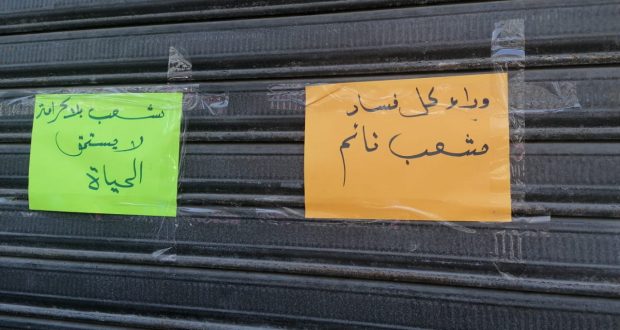 وراء كل فساد
شعب نائم
شعب بلا كرامة
لا يستحق
الحياة